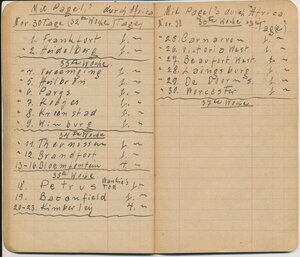 Mit Pagell's durch Africa
Nov. 30 Tage 32te Woche (Tage)
" 1. Frankfort 1. ~
" 2. Heidelberg 1. ~
33te Woche
" 4. 1. ~
" 5. Heilbron 1. ~
" 6. Parys 1. ~
" 7. 1. ~
" 8. Kroonstad 1. ~
" 9. Winburg 1. ~
34te Woche
" 11. Theunissen 1. ~
" 12. Brandfort 1. ~
13-16. Bloemfontein 4. ~
35te Woche
18. Petrus 1. ~
19. Beconfield 1. ~
20-23. Kimberley 4. ~
Mit Pagel's durch Africa
Nov. 30 36te Woche (Tage)
" 25. Carnarvon 1. ~
" 26. Victoria West. 1. ~
" 27. Beaufort West. 1. ~
" 28. Laingsburg 1. ~
" 29. De Dorns 1. ~
" 30. Worcester 1. ~
37te Woche